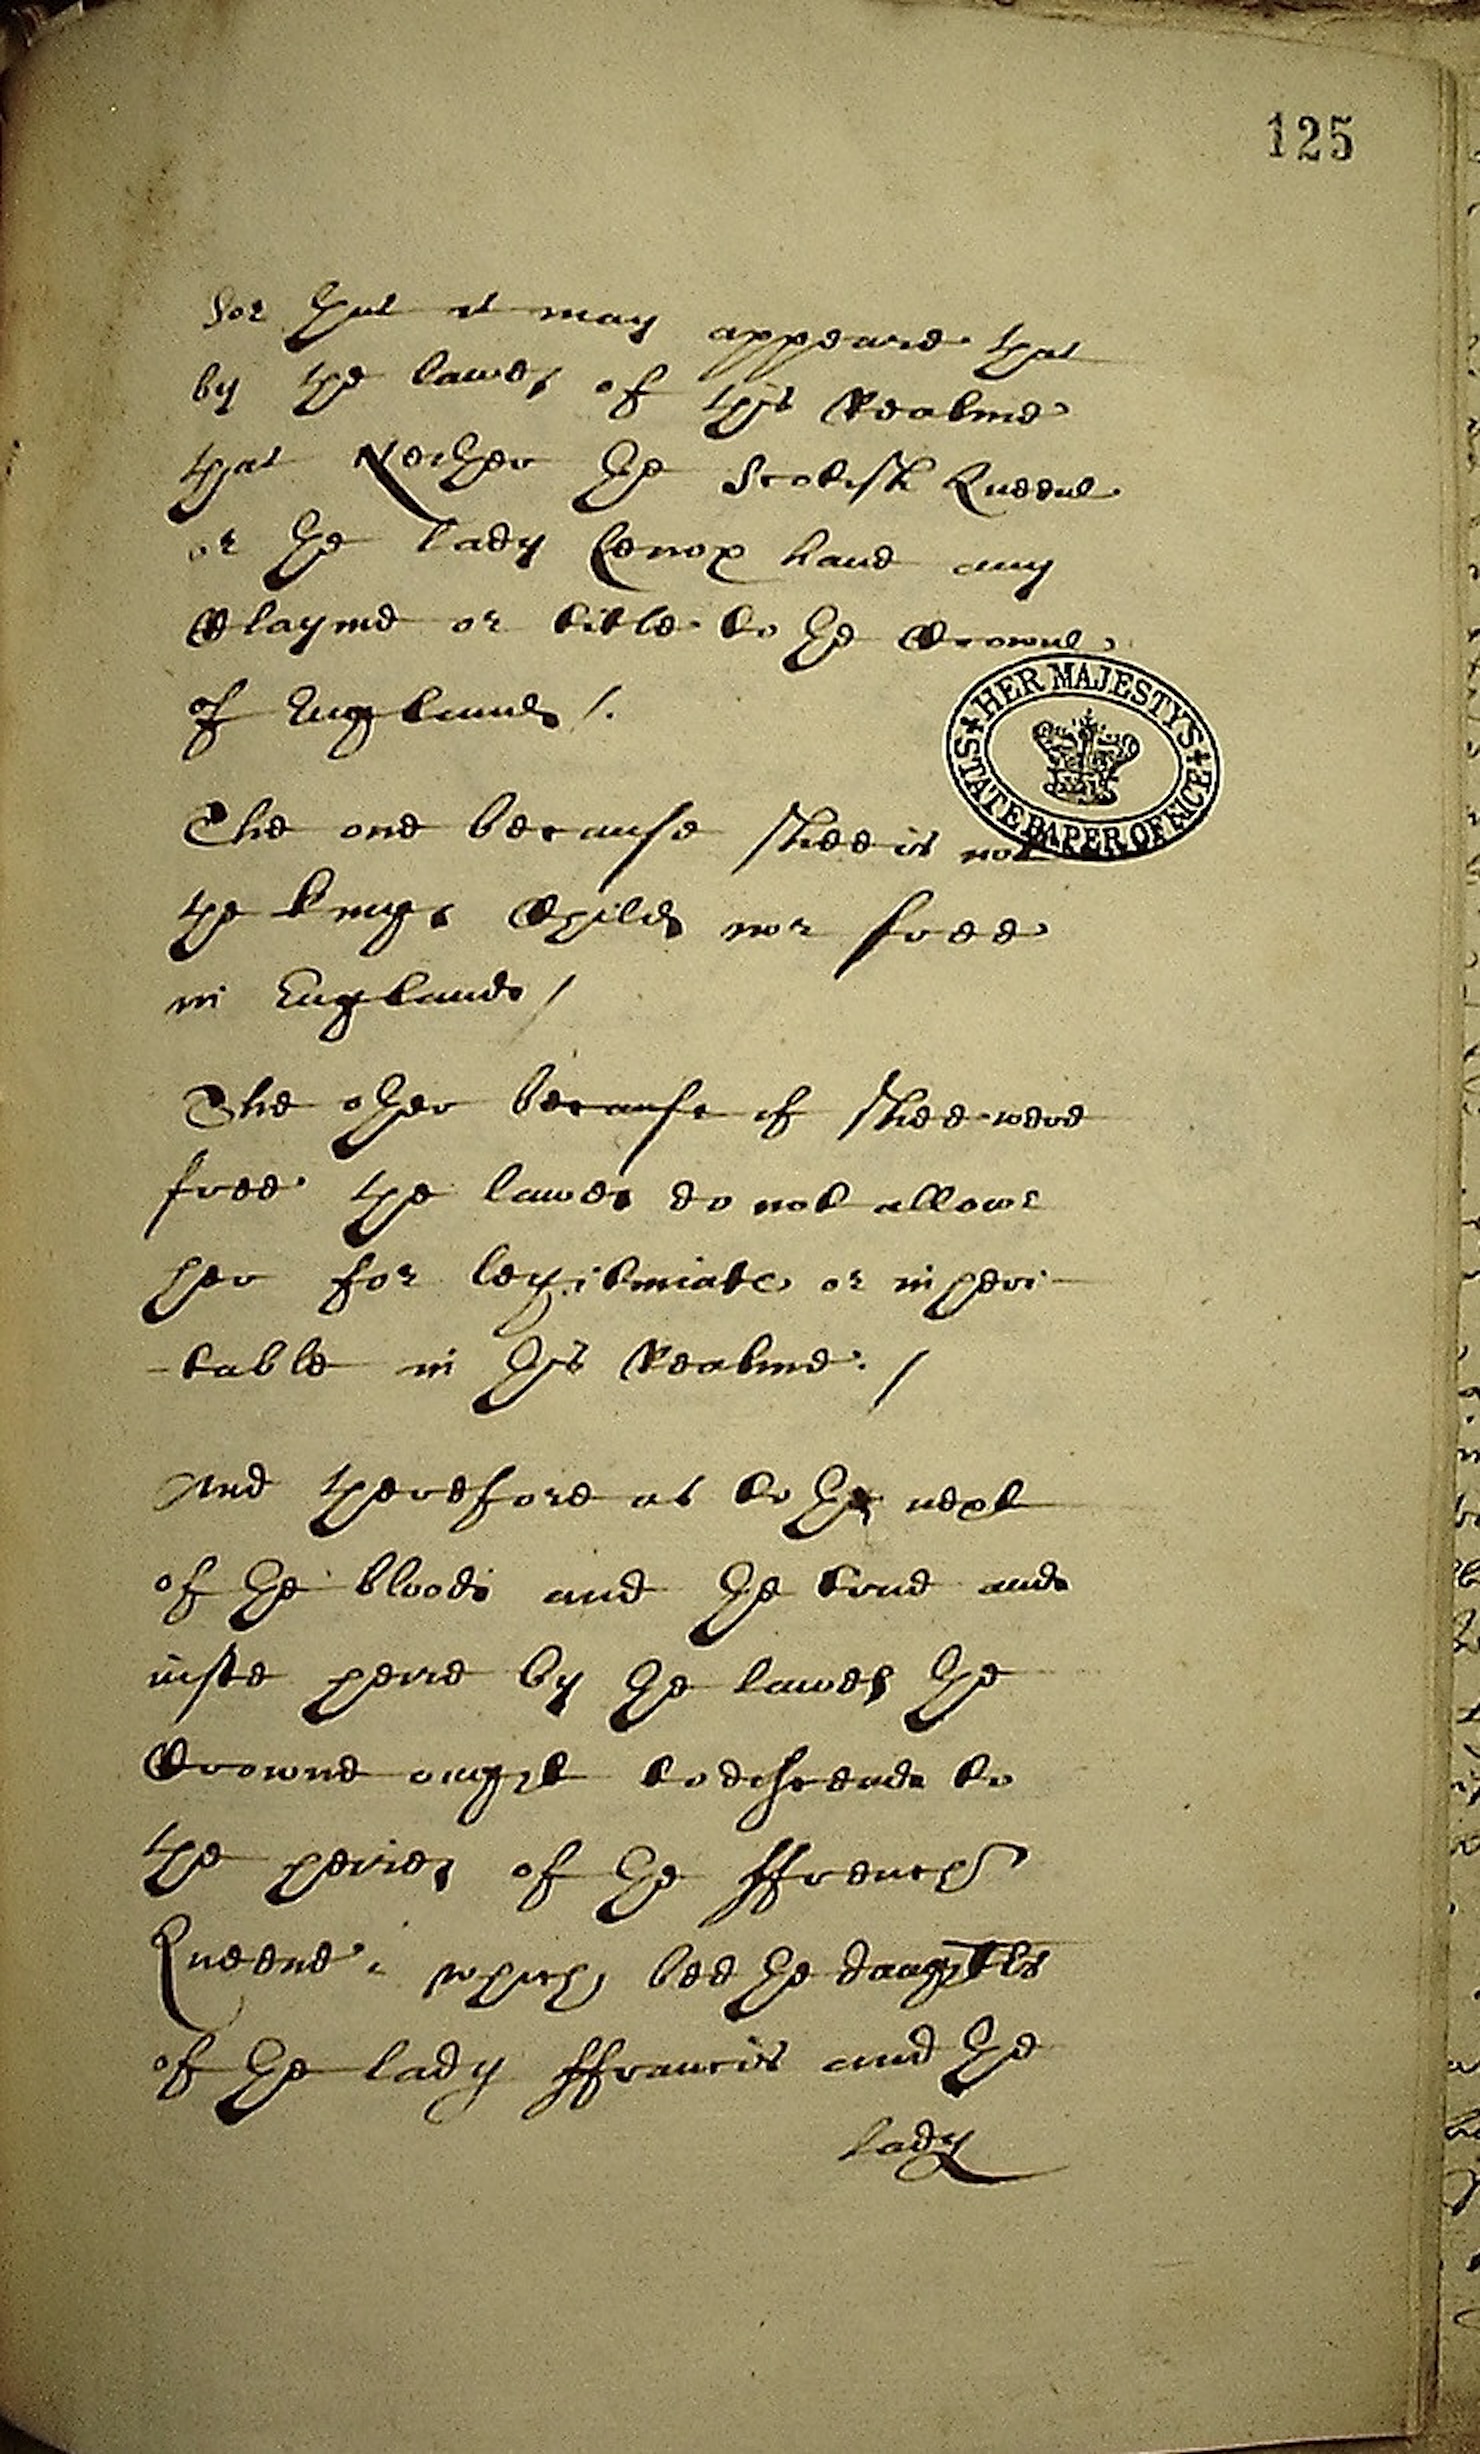 125
So that it may appeare that
by the lawes of this Realme
that Nether the Scotish Queene
or the lady Lenox haue any
Clayme or title to the Crowne
of Englande /.
HER MAJESTY'S STATE PAPER OFFICE
The one because shee is not
the kinges Childe nor free
in Englande /
The other because if shee were
free the lawes do not allowe
her for legitimate or inheri-
-table in this Realme. /
And therefore as to the next
of the bloode and the true and
iuste heire by the lawes the
Crowne ought to descende to
the heires of the ffrench
Queene which bee the daughters
of the lady ffrancis and the
lady